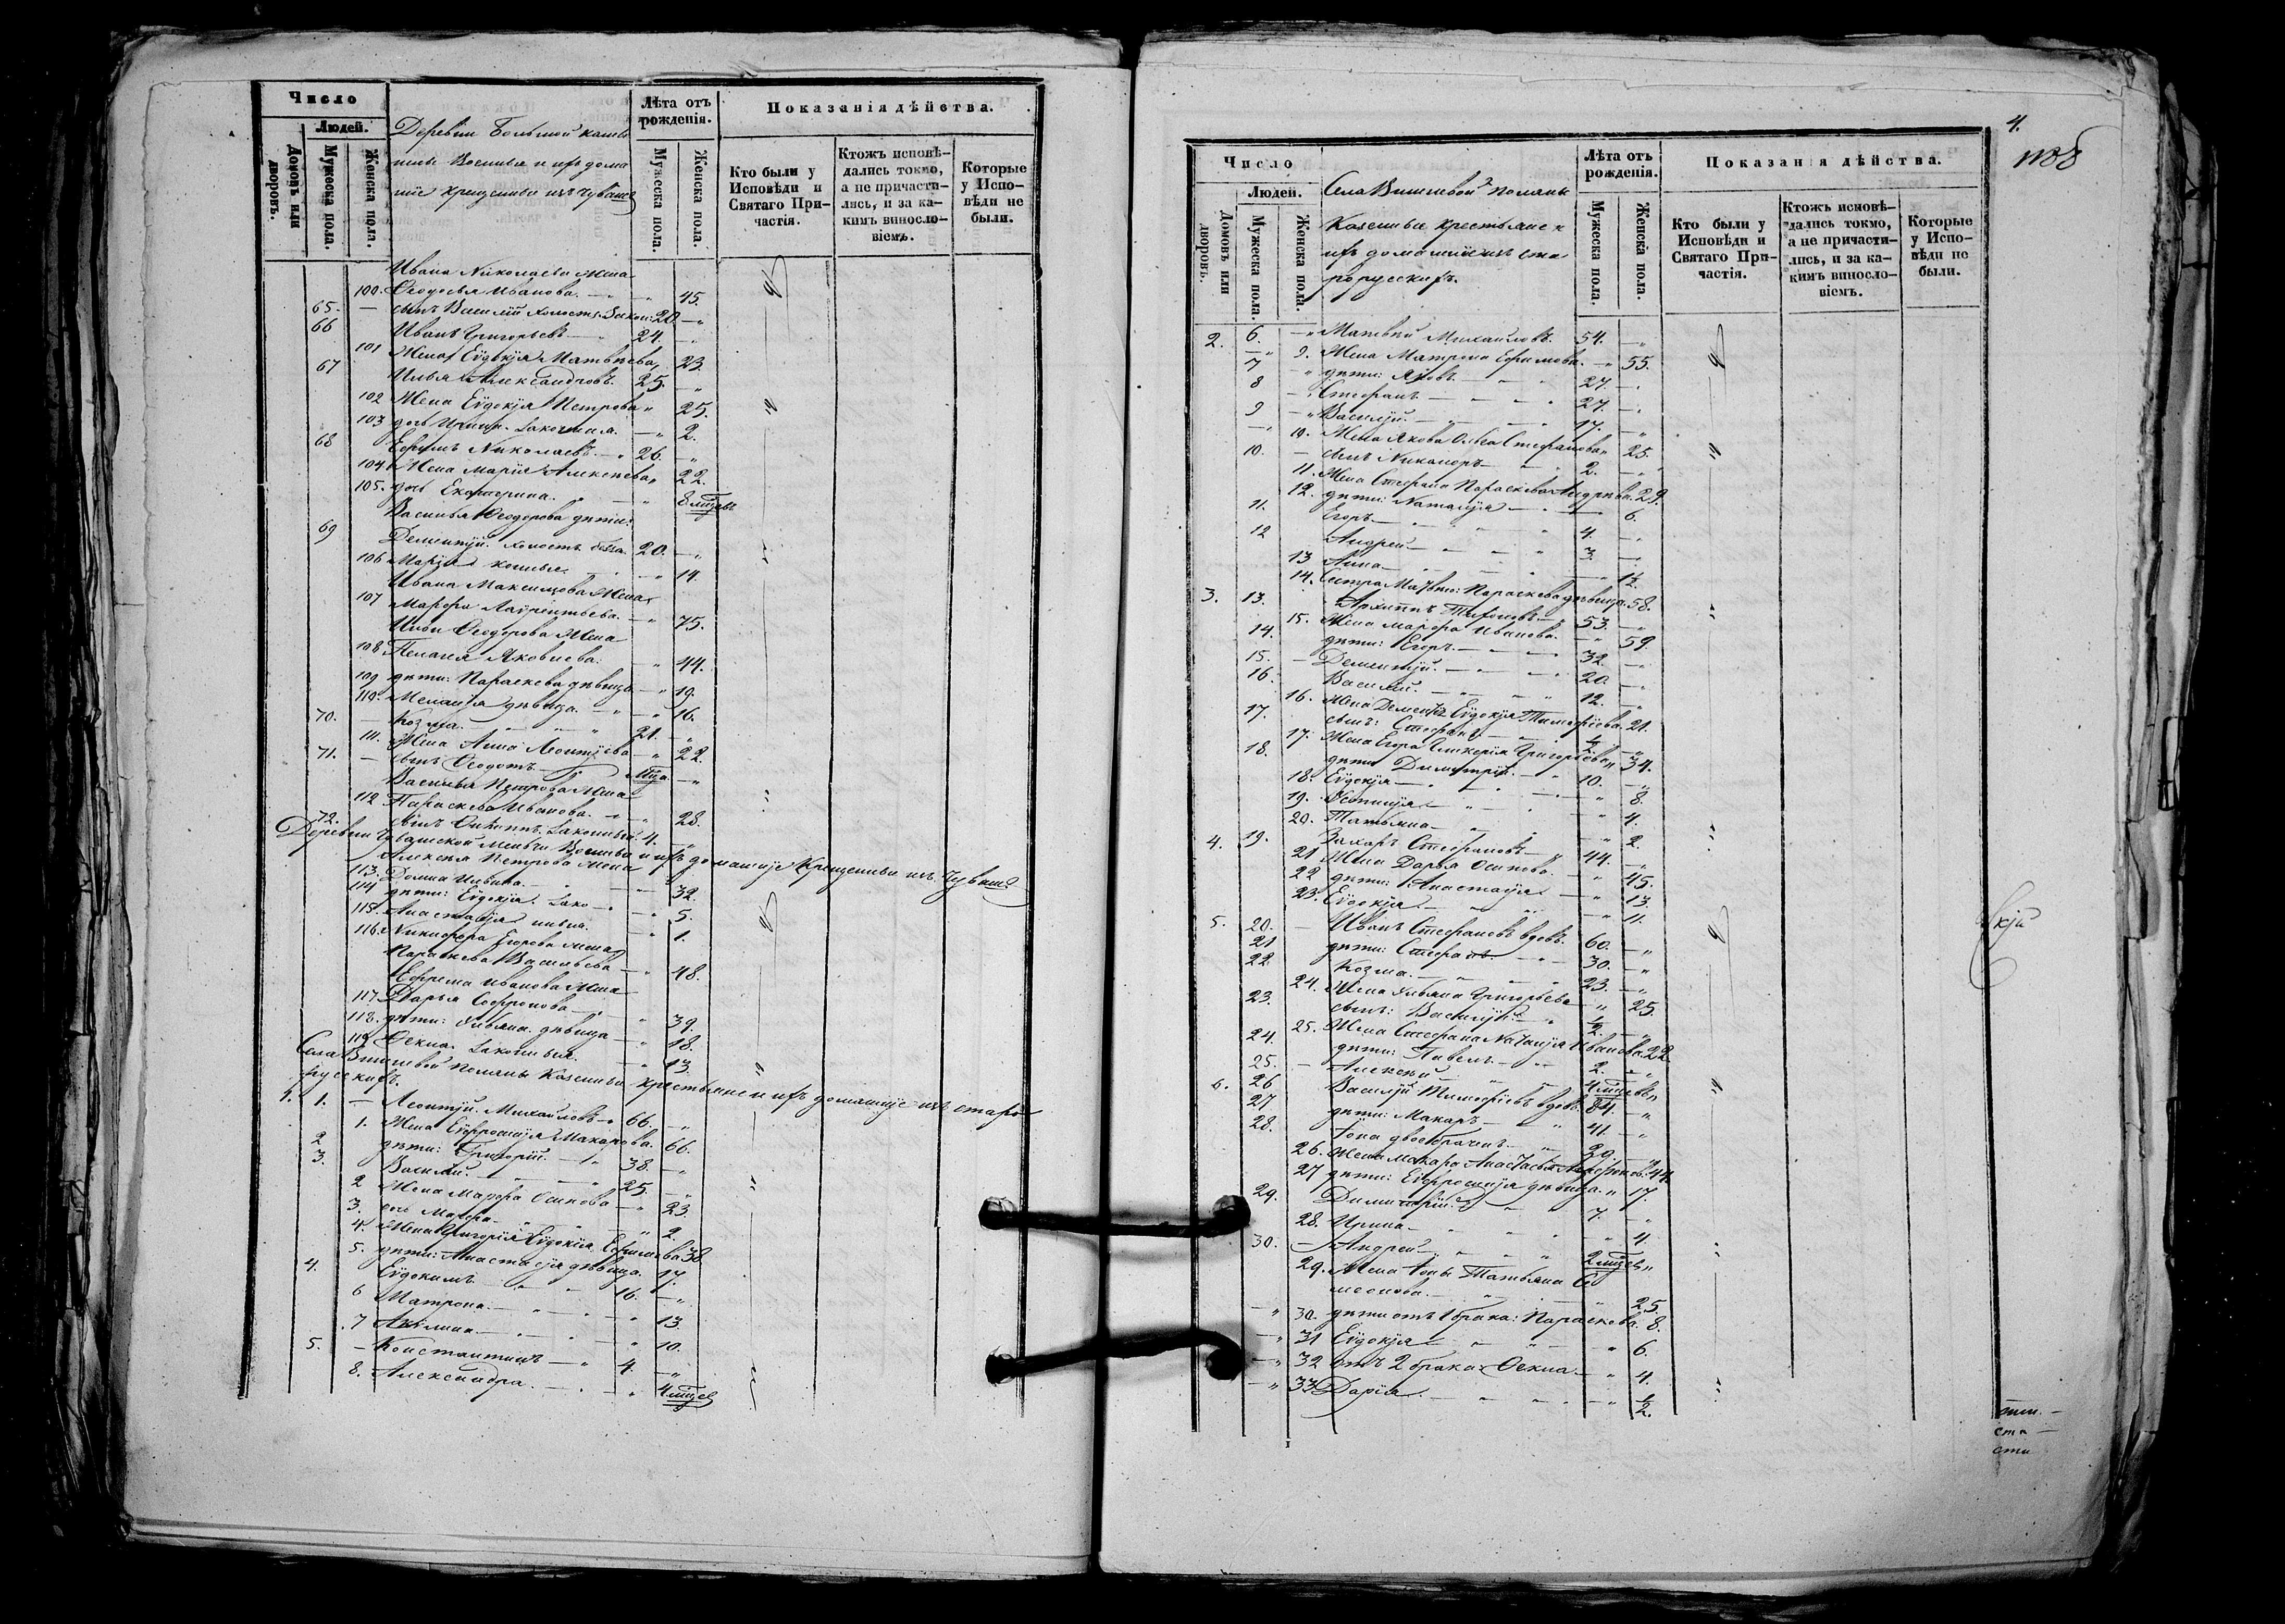 Число
Людей.
Домовъ или дворовъ.
Мужеска пола.
Женска пола.
Деревни Большой
Военные и ихъ дома
шніе крещеные изъ Чувашъ
Лѣта отъ рожденія.
Мужеска пола.
Женска пола.
Показанія дѣйства.
Кто были у Исповѣди и Святаго Причастія.
Ктожъ исповѣдались токмо, а не причастились, и за какимъ винословіемъ.
Которые у Исповѣди не были.
Ивана Николаева жена
100. Феодосья Иванова. 45.
65. сынъ Василій холостъ 20
66 Иванъ Григорьевъ 24.
101 Жена Евдокія Матвѣева 23.
67 Илья Александровъ. 25.
102 Жена Евдокія Петрова 25.
103 дочь 2.
68 Ефимъ Николаевъ 26.
104 Жена Марія Алексѣева 22.
105. дочь Екатерина. 8 мѣсяцъ
Василья Феодорова дѣти:
69 Дементій холостъ 20.
106 Марія 14.
Ивана Максимова Жена
107 Марфа Лаврентьева. 75.
Феодорова Жена
108 Пелагея Яковлева. 44.
109 дѣти: Параскева дѣвица 19.
110. Меланія дѣвица. 16.
70. Козма. 21.
111. Жена Анна Леонтіева 22.
71. сынъ Феодотъ
Василья Петрова Жена
112 Параскева Иванова. 28.
72. сынъ 4.
Деревни Чувашской Военные и ихъ домашніе Крещеные изъ Чувашъ
Алексѣя Петрова Жена
113. Домна Ильина 32.
114 дѣти: Евдокія. 5.
115. Анастасія 1.
116. Никифора Егорова Жена
Параскева Васильева 48.
Ефрема Иванова Жена
117. Дарья Софронова 39.
118. дѣти: Ульяна дѣвица 18.
119 Фекла 13.
Села Вишневой Поляны Казенные крестьяне и ихъ домашніе изъ старо
русскихъ.
1. 1. Леонтій Михайловъ 66.
1. Жена Евфросинія Макарова. 66.
2 дѣти: Григорій. 38.
3. Василій. 25.
2 Жена Марфа Осипова 23.
3. дочь Марфа 2.
4. Жена Григорія Евдокія Ефимова 38
5. дѣти: Анастасія дѣвица. 17.
4. Евдокимъ 16.
6 Матрона. 13.
7 Акилина 10.
5. Константинъ 4.
8. Александра. 4 мѣсяцъ
4.
1188
Число
Людей.
Домовъ или дворовъ.
Мужеска пола.
Женска пола.
Села Вишневой Поляны
Казенные крестьяне и
ихъ домашніе изъ ста
рорусскихъ.
Лѣта отъ рожденія.
Мужеска пола.
Женска пола.
Показанія дѣйства.
Кто были у Исповѣди и Святаго Причастія.
Ктожъ исповѣдались токмо, а не причастились, и за какимъ винословіемъ.
Которые у Исповѣди не были.
2. 6. Матвѣй Михайловъ. 54.
9. Жена Матрона Ефимова. 55.
7 дѣти: Яковъ. 27.
8 Стефанъ 27.
9 Василій. 17.
10. Жена Якова Ольга Стефанова 25.
10. сынъ Никаноръ 2.
11. Жена Стефана Параскева Андреева. 29.
12. дѣти: Наталія 6.
11. Егоръ 4.
12 Андрей 3.
13 Анна 1/2.
14. Сестра Матвѣя: Параскева дѣвица. 58.
3. 13. Архиппъ Тихоновъ 53.
15. Жена Марфа Иванова. 59.
14. дѣти: Егоръ 32.
15. Дементій. 20.
16. Василій. 12.
16. Жена Дементія Евдокія Тимофѣева. 21.
17. сынъ: Стефанъ 1/2
17. Жена Егора Гликерія Григорьева 34.
18. дѣти Димитрій. 10.
18. Евдокія 8.
19. 4.
20. Татьяна 2.
4. 19. Захаръ Стефановъ 44.
21 Жена Дарья Осипова. 45.
22 дѣти: Анастасія 13.
23. Евдокія 11.
5. 20. Иванъ Стефановъ вдовъ. 60.
21 дѣти: Стефанъ 30.
22 Козма. 23.
24. Жена Ульяна Григорьева 25.
23. сынъ: Василій 1/2.
25. Жена Стефана Наталія Иванова. 22.
24. дѣти: Павелъ 2.
25. Алексѣй 4 мѣсяцъ
6. 26 Василій Тимофѣевъ вдовъ 84.
27 дѣти: Макаръ 41.
28. Іона двоебраченъ 29.
26. Жена Макара Анастасія 44.
27 дѣти: Евфросинія дѣвица. 17.
29. Димитрій 7.
28. Ирина 4.
30. Андрей 2 мѣсяц
29. Жена Іоны Татьяна Си
меонова. 25.
30. дѣти отъ 1 брака: Параскева. 8.
31 Евдокія 6.
32 отъ 2 брака Фекла 4.
33 Дарія 1/2.
кій